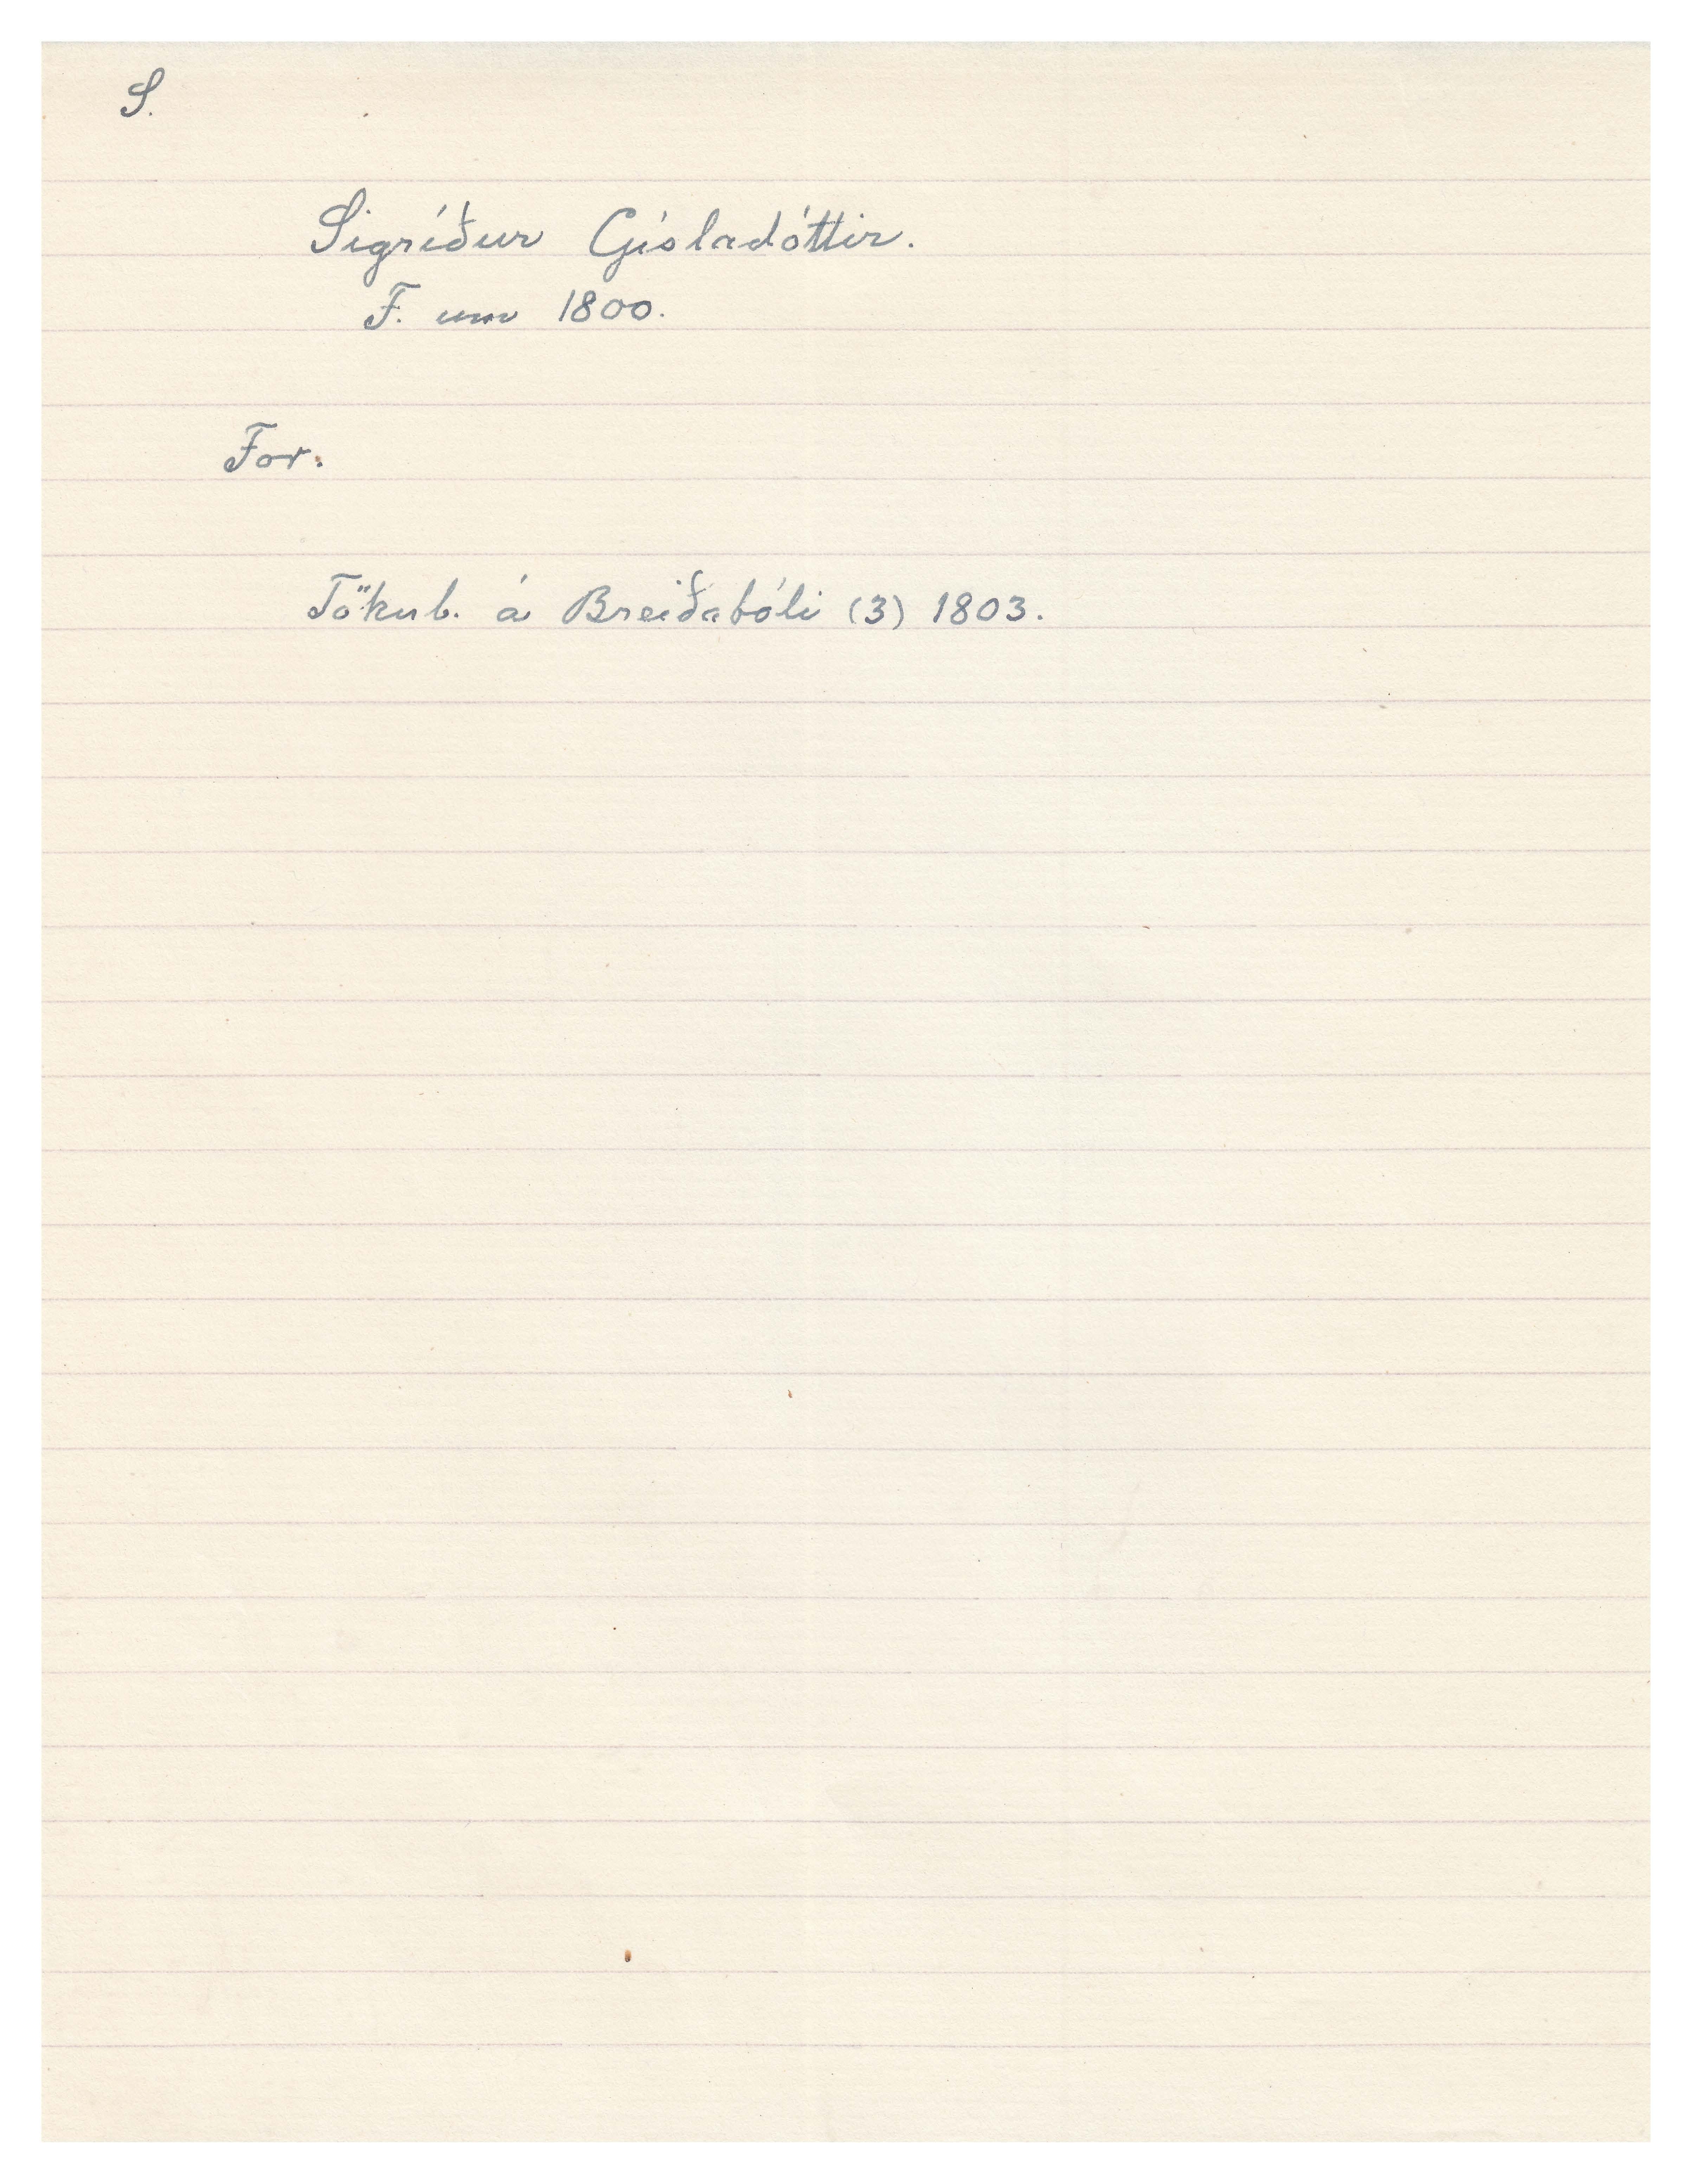 S.
Sigríður Gísladóttir.
F. um 1800.
For.
Tökub. á Breiðabóli (3) 1803.